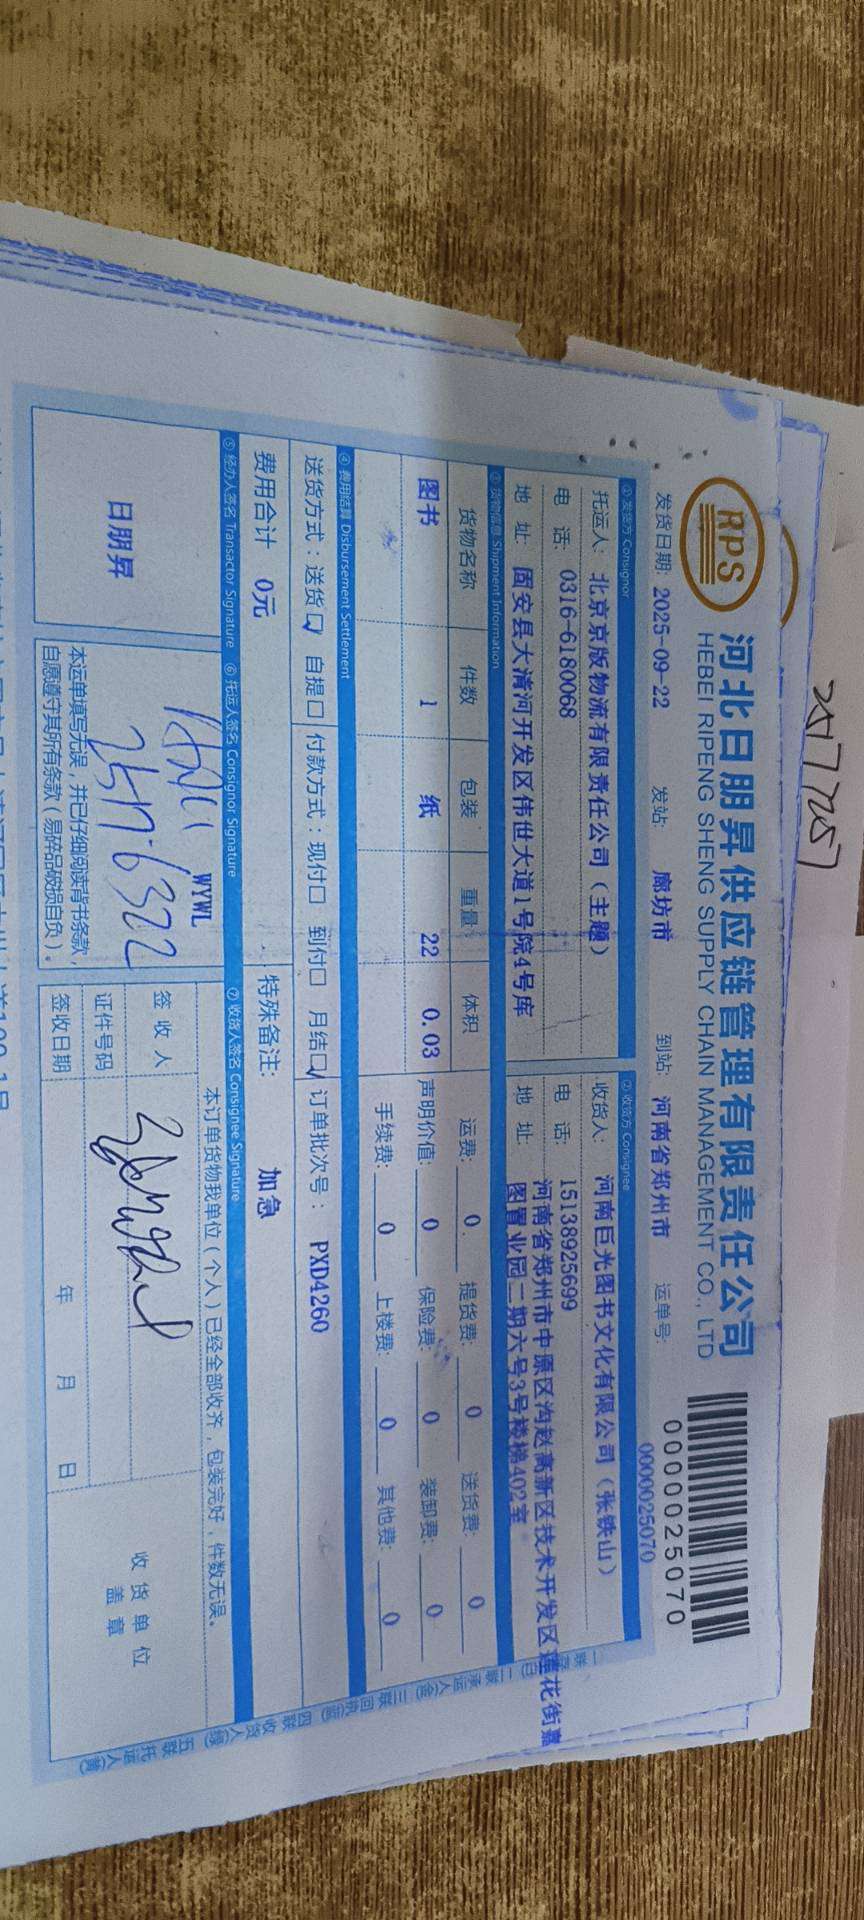 257257
RPS
河北日朋昇供应链管理有限责任公司
HEBEI RIPENG SHENG SUPPLY CHAIN MANAGEMENT CO., LTD
0000025070
发货日期: 2025-09-22 发站: 廊坊市 到站: 河南省郑州市 运单号: 0000025070
① 发货方 Consignor ② 收货方 Consignee
托运人: 北京京版物流有限责任公司（主题） 收货人: 河南巨光图书文化有限公司（张铁山）
电 话: 0316-6180068 电 话: 15138925699
地 址: 固安县大清河开发区伟世大道1号院4号库 地 址: 河南省郑州市中原区沟赵高新区技术开发区莲花街嘉
图置业园二期六号3号楼梯402室
③ 货物信息 Shipment Information
货物名称 件数 包装 重量 体积 运费: 0. 提货费: 0 送货费: 0
图书 1 纸 22 0.03 声明价值: 0 保险费: 0 装卸费: 0
手续费: 0 上楼费: 0 其他费: 0
④ 费用结算 Disbursement Settlement
送货方式：送货☑ 自提□ 付款方式：现付□ 到付□ 月结☑ 订单批次号： PXD4260
费用合计 0元 特殊备注: 加急
⑤ 经办人签名 Transactor Signature ⑥ 托运人签名 Consignor Signature ⑦ 收货人签名 Consignee Signature
日朋昇
WYWL
本运单填写无误，并已仔细阅读背书条款，
自愿遵守其所有条款（易碎品破损自负）。
本订单货物我单位（个人）已经全部收齐，包装完好，件数无误。
签 收 人
证件号码
签收日期 年 月 日
收 货 单 位
盖 章